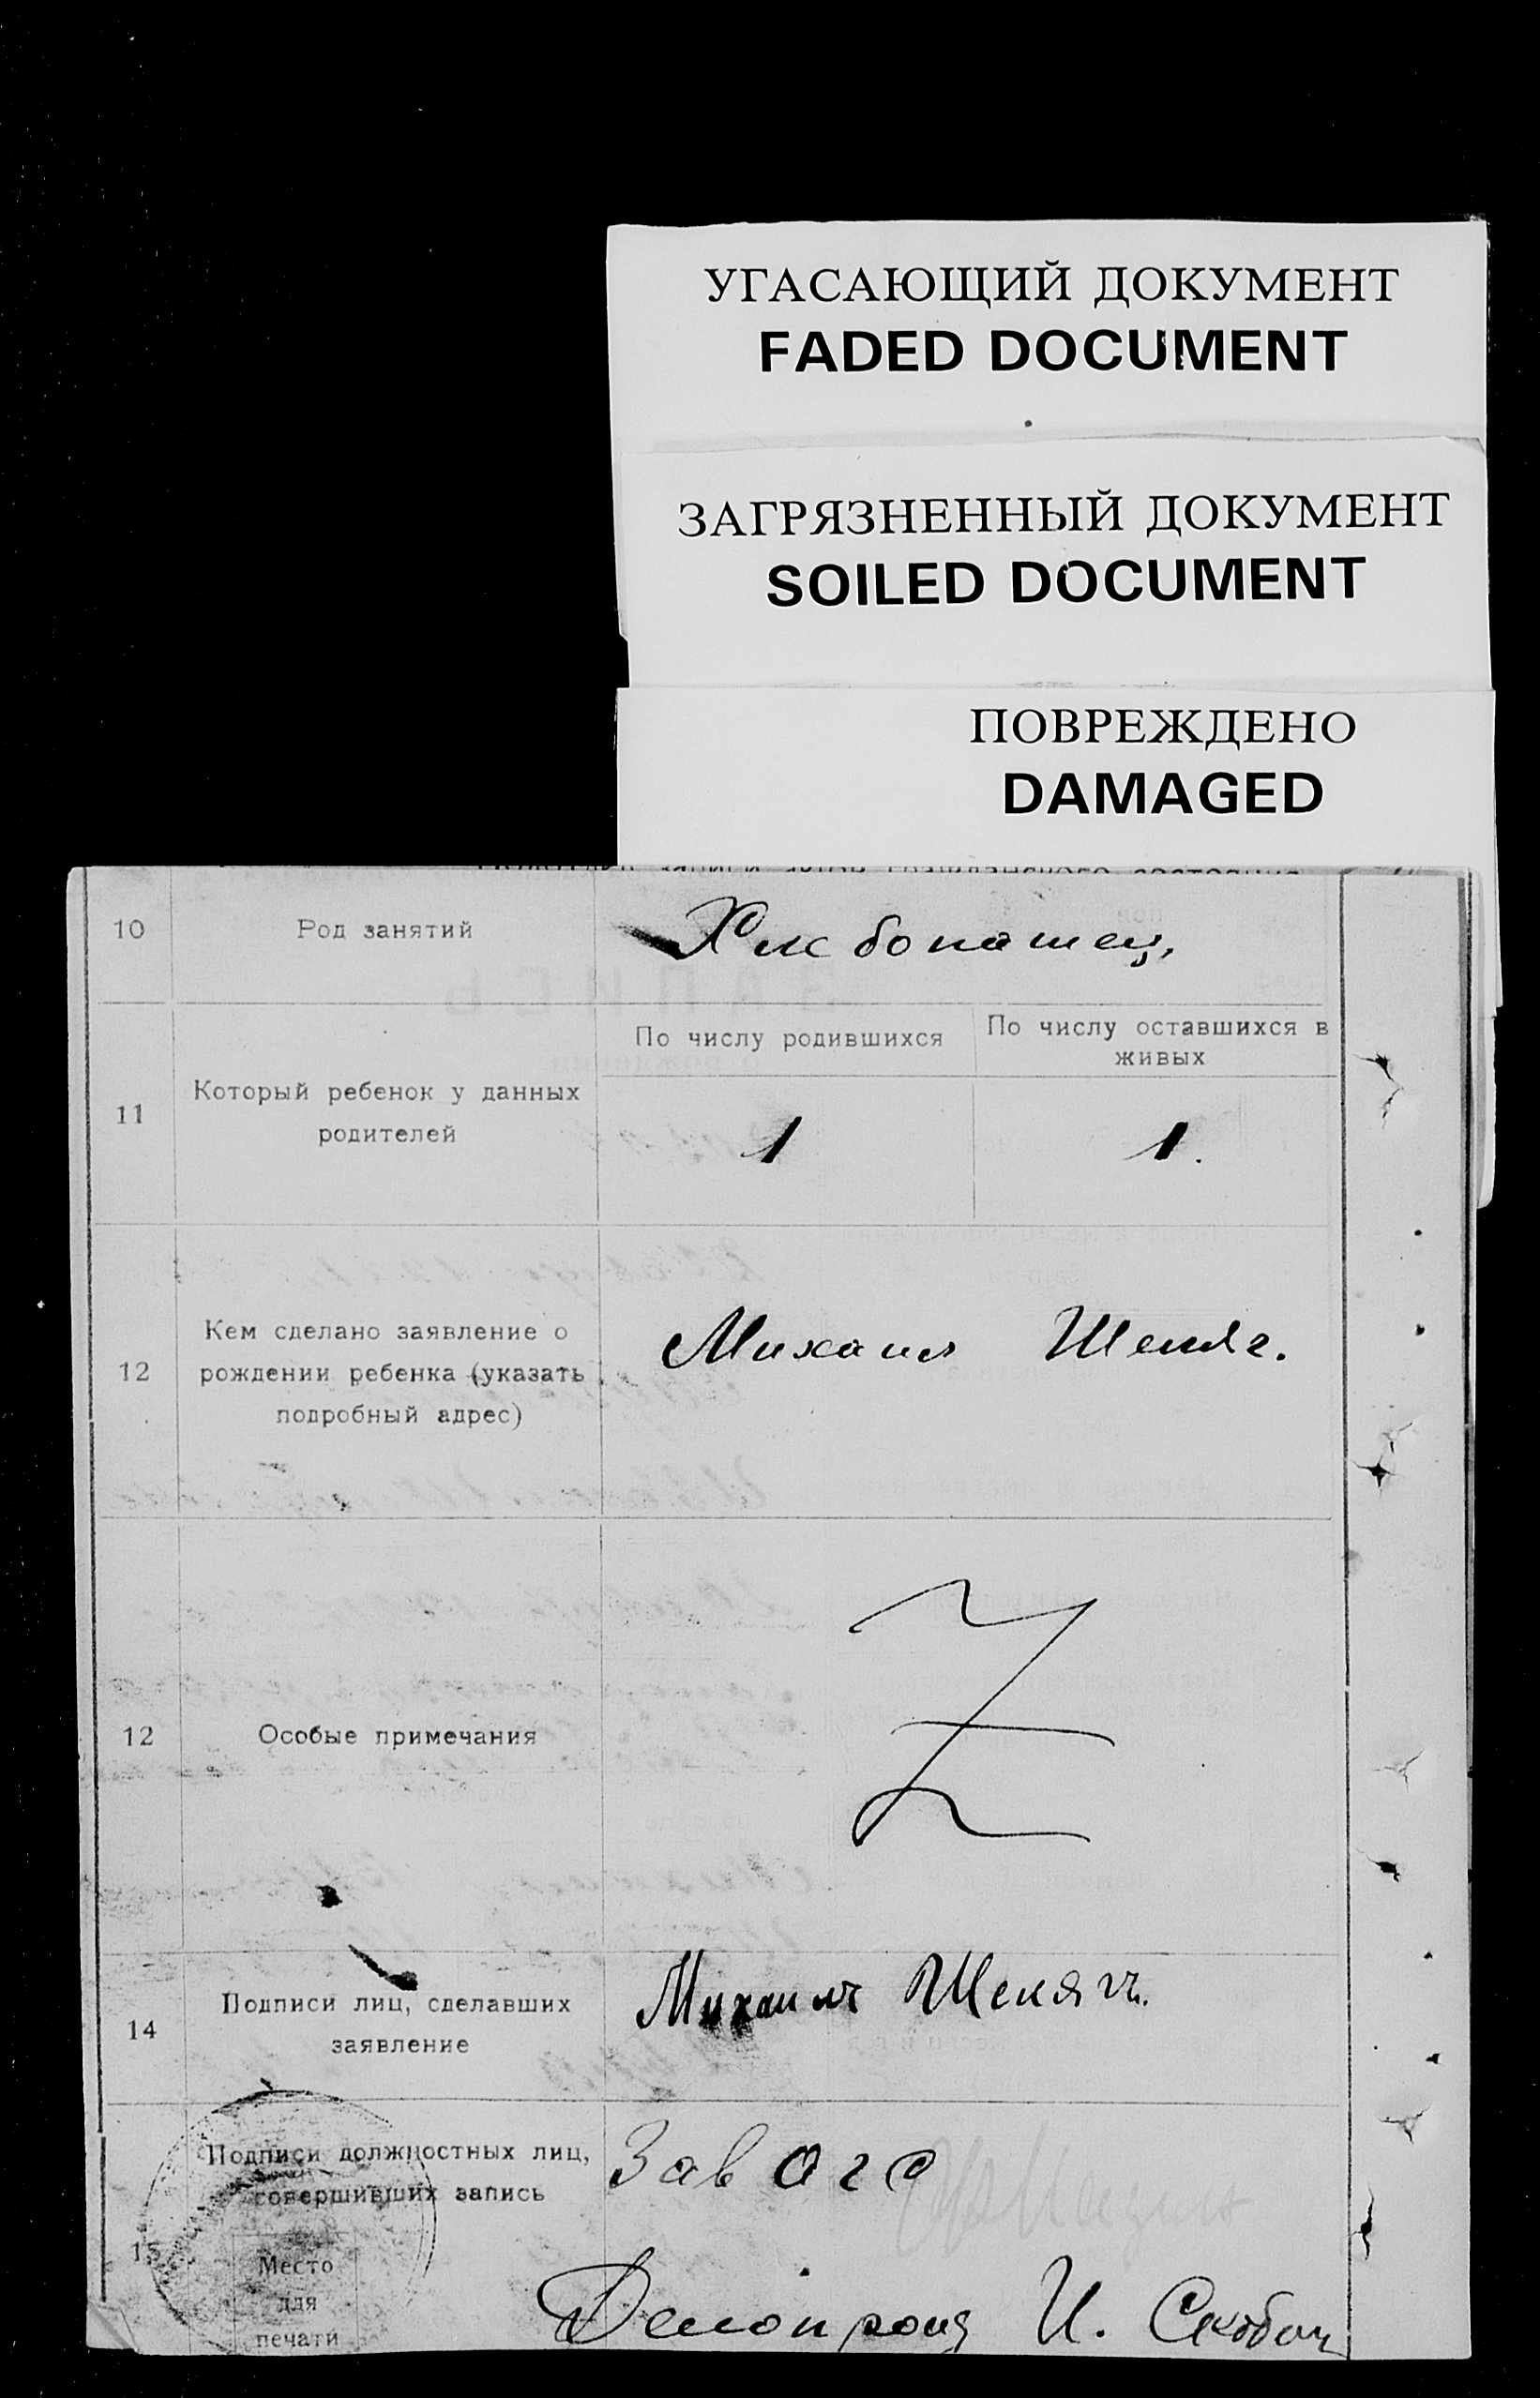 УГАСАЮЩИЙ ДОКУМЕНТ
FADED DOCUMENT
ЗАГРЯЗНЕННЫЙ ДОКУМЕНТ
SOILED DOCUMENT
ПОВРЕЖДЕНО
DAMAGED
10 Род занятий Хлебопашец,
11 Который ребенок у данных родителей
По числу родившихся
По числу оставшихся в живых
1 1.
12 Кем сделано заявление о
рождении ребенка (указать
подробный адрес)
Михаил Шекяг.
12 Особые примечания
Z
14 Подписи лиц, сделавших
заявление
Михаилъ Шекягъ.
15 Подписи должностных лиц,
совершивших запись
Зав
Место
для
печати
Делопроиз И.